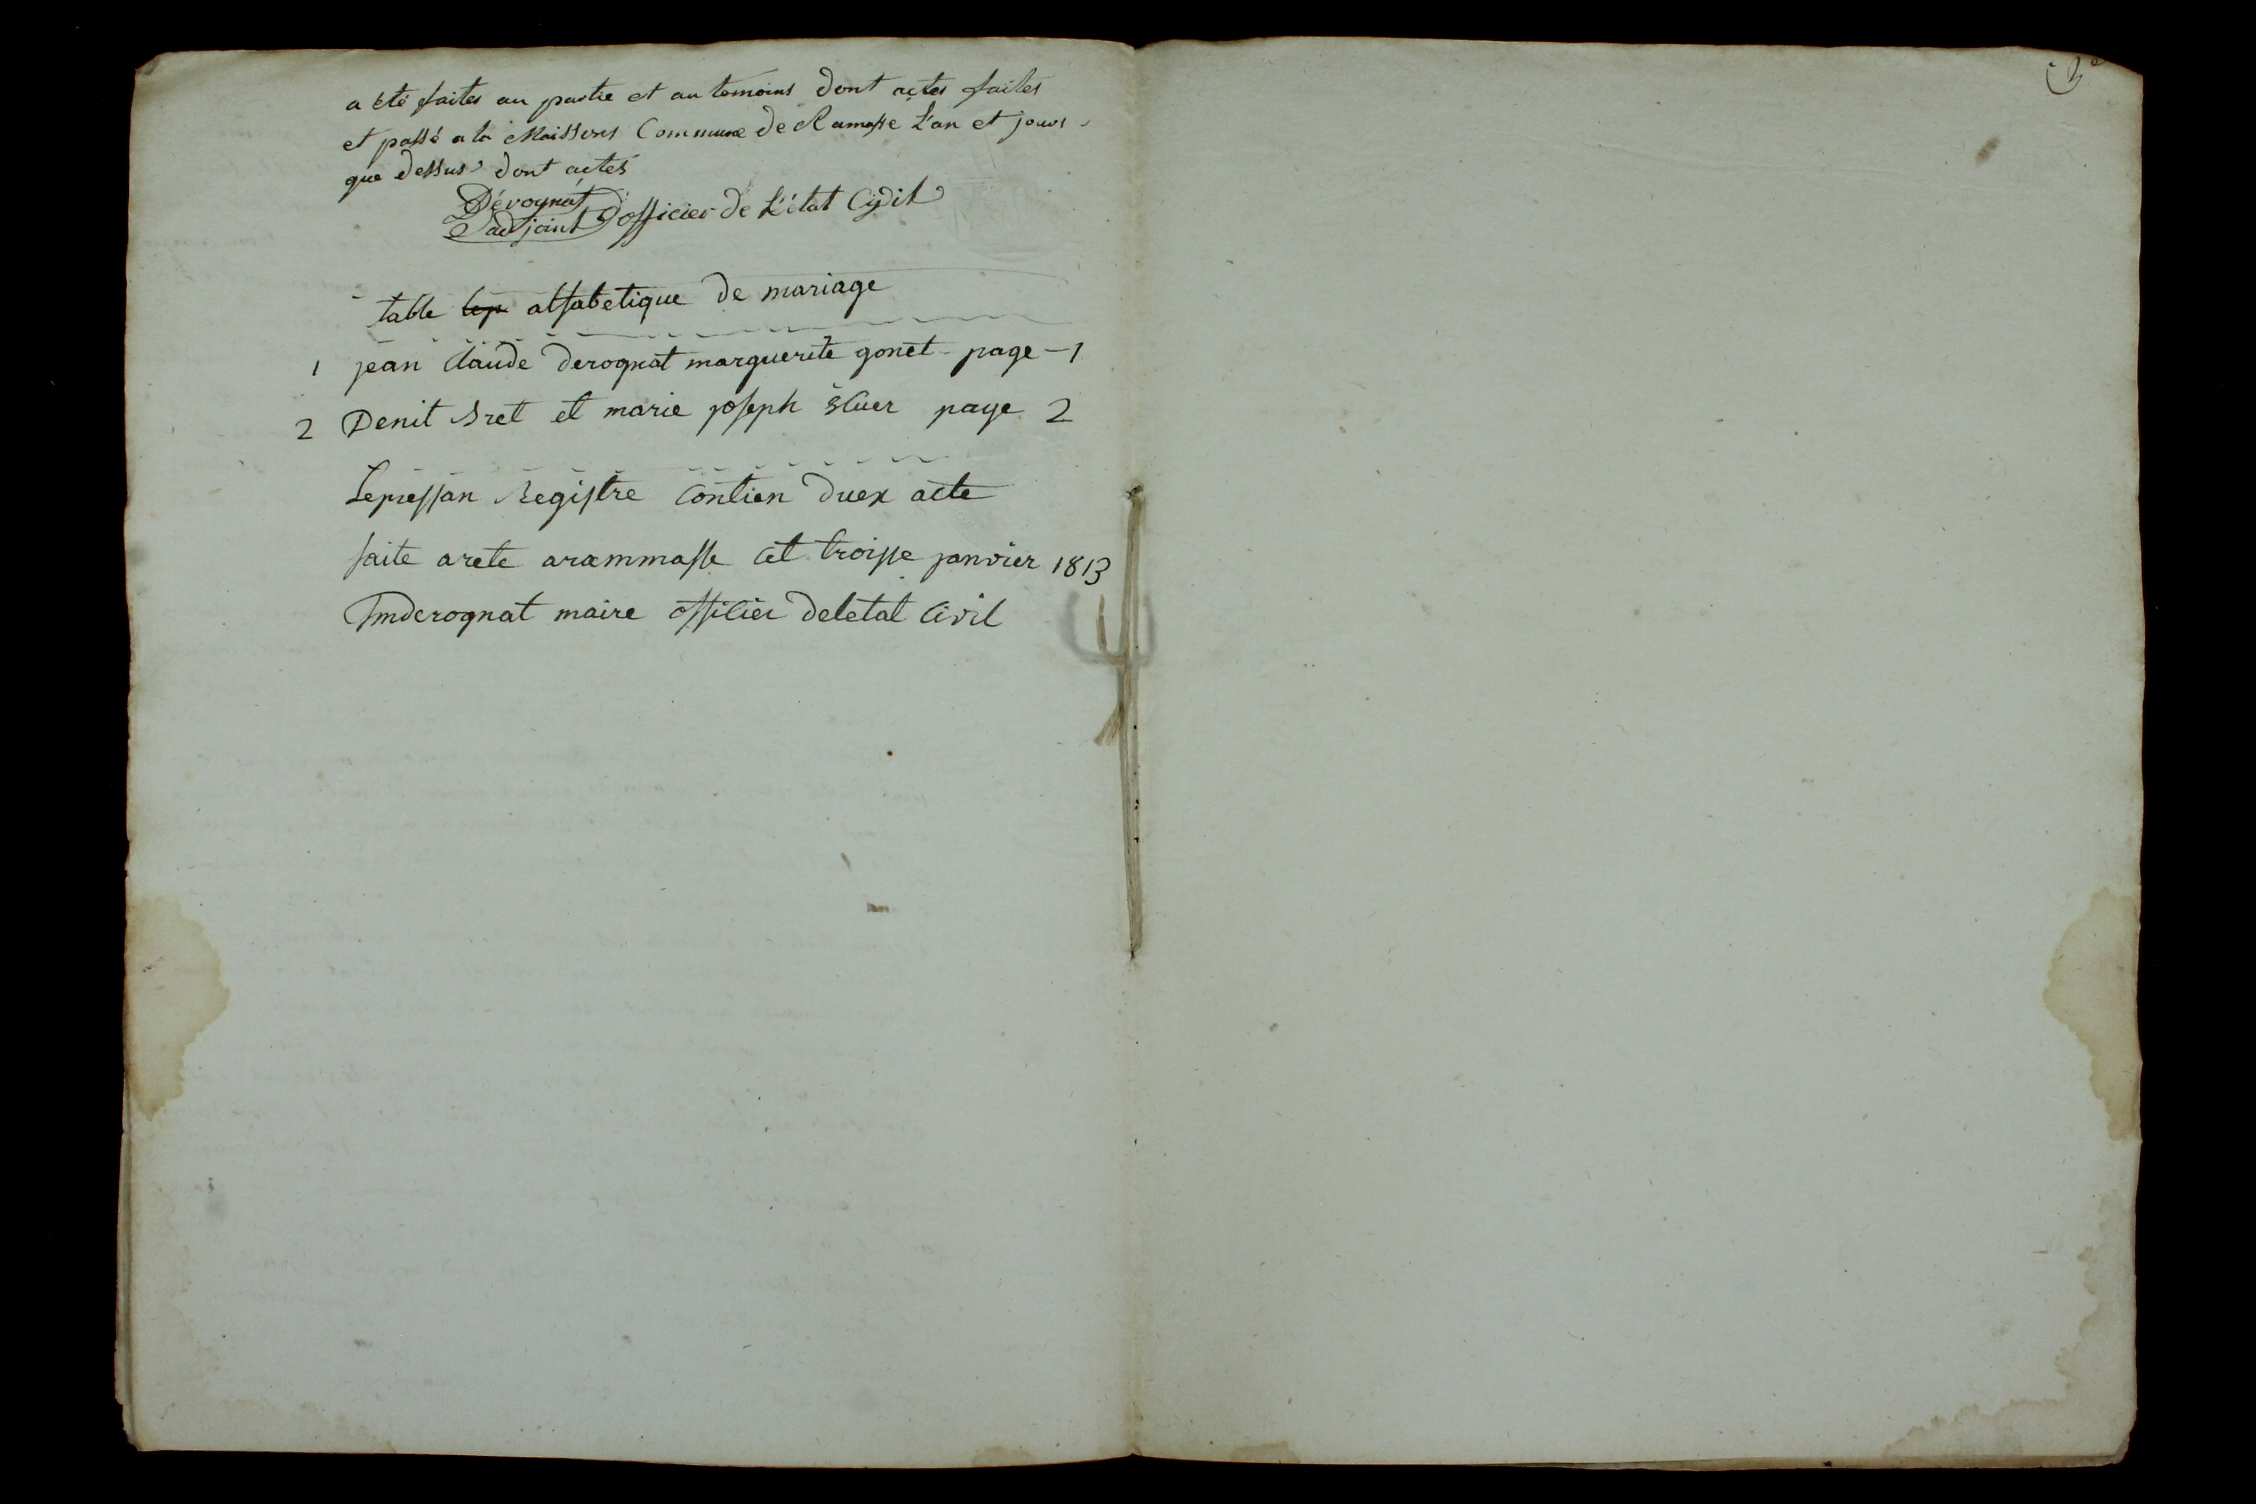 a été faites au partie et au temoins dont actes faites
et passé a la Maissons Commune de Ramasse L'an et jours
que dessus dont actes
Dérognat
adjoint D'officier de L'état Civil
table alfabetique de mariage
1 jean claude derognat marguerite gonet page 1
2 Denit Bret et marie joseph page 2
Lepressan Registre contien duex acte
faite arete arammasse cet troisse janvier 1813
derognat maire officier deletat civil